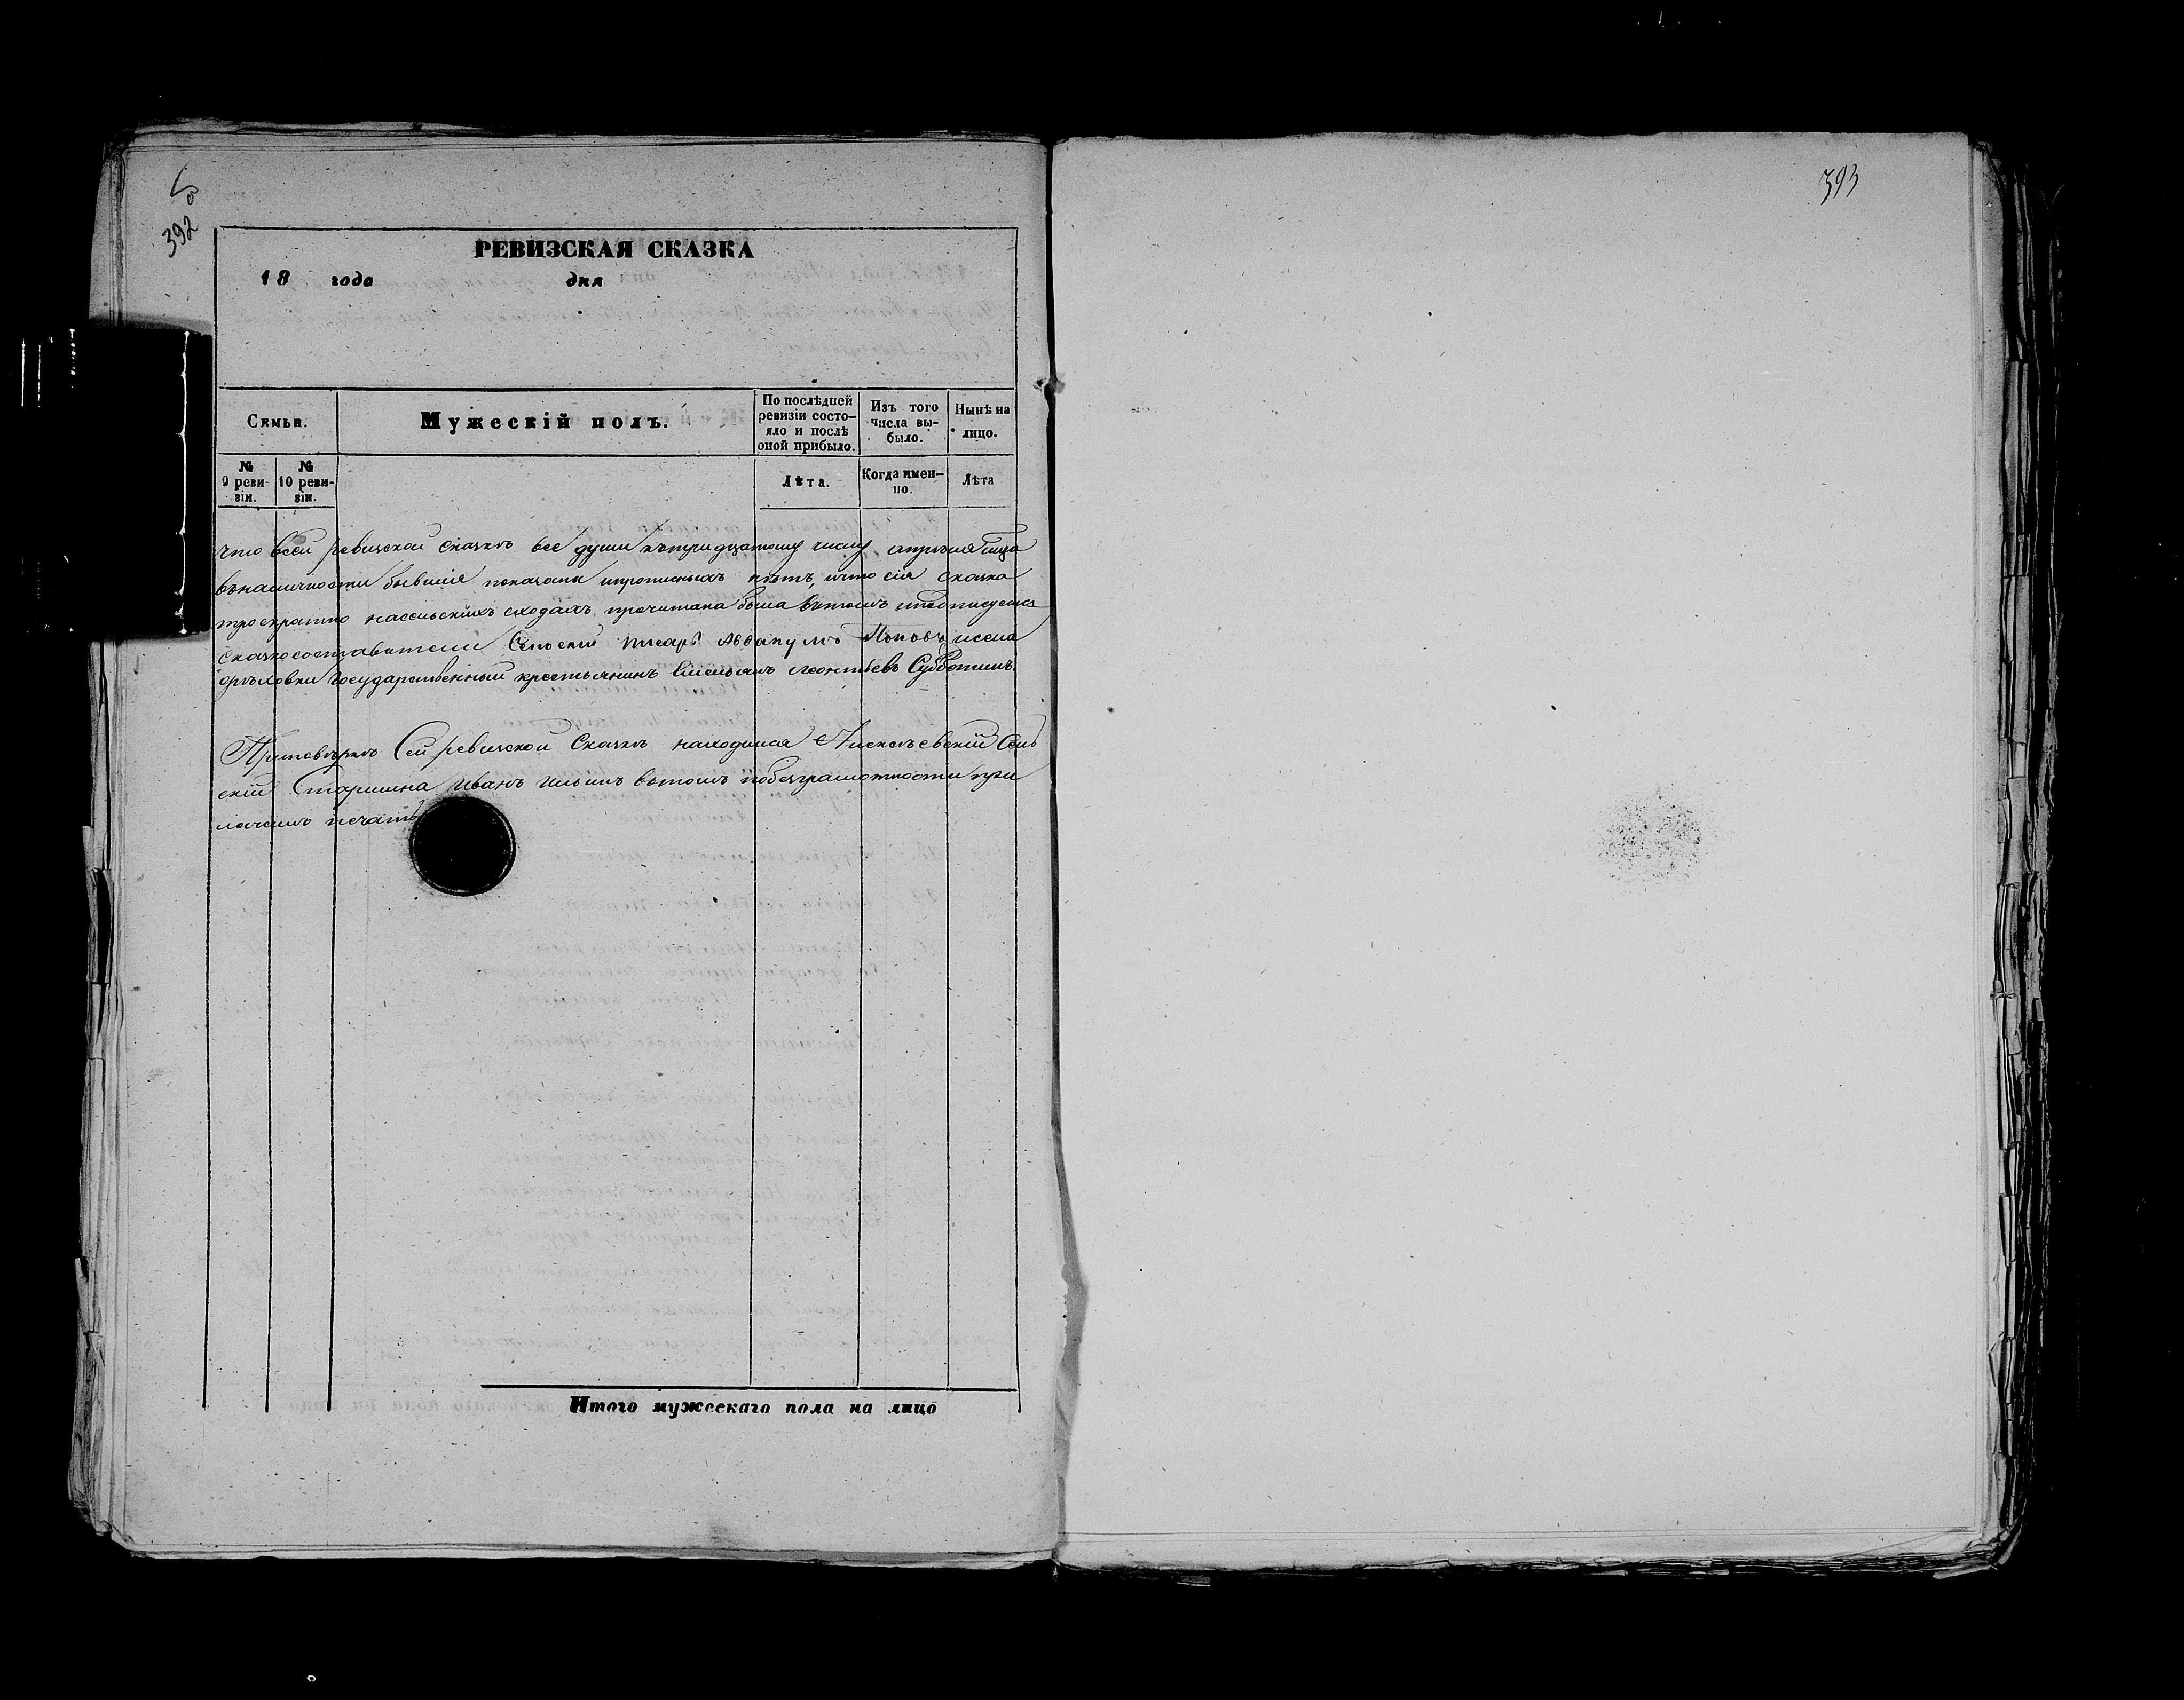 392
РЕВИЗСКАЯ СКАЗКА
18 года дня
Семьи.
Мужескій полъ.
По послѣдней ревизіи состо-
яло и послѣ оной прибыло.
Изъ того числа вы-
было.
Нынѣ на лицо.
№ 9 реви-
зіи.
№ 10 реви-
зіи.
Лѣта.
Когда имен-
но.
Лѣта
что всей ревизской сказкѣ все души къ тридцатому числу апрѣля
въ наличности бывшія показаны и прописныхъ нѣтъ, и что сія сказка
троекратно на сельскихъ сходахъ прочитана была въ томъ и подписуемся
сказкосоставители Сельскій писарь Аввакумъ Поповъ и села
Государственный крестьянинъ Емельянъ Леонтьевъ Субботинъ.
При повѣркѣ Сей ревизской Сказкѣ находился Сель
скій Старшина Иванъ Ильинъ въ томъ по безграмотности при
ложилъ печать
Итого мужескаго пола на лицо
393